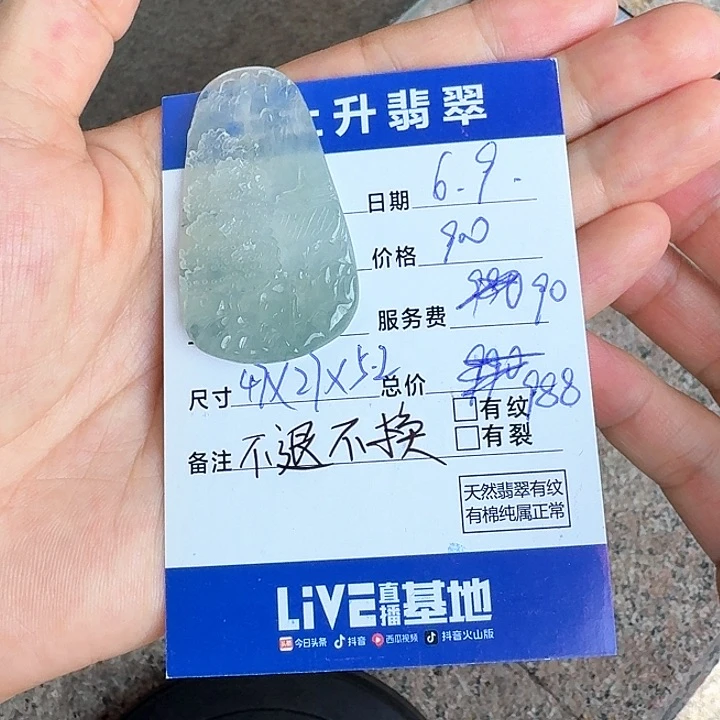 上升翡翠
日期 6.9.
价格 900
服务费 90
尺寸 47X27X5.2 总价 988
有纹
有裂
备注 不退不换
天然翡翠有纹
有棉纯属正常
LiVE直播基地
头条 今日头条 抖音 西瓜视频 抖音火山版